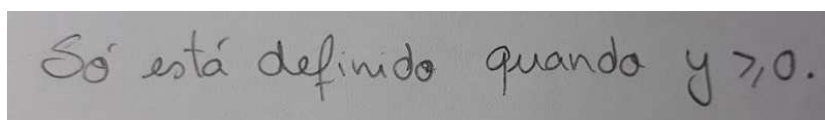 Só está definido quando y ⩾ 0.